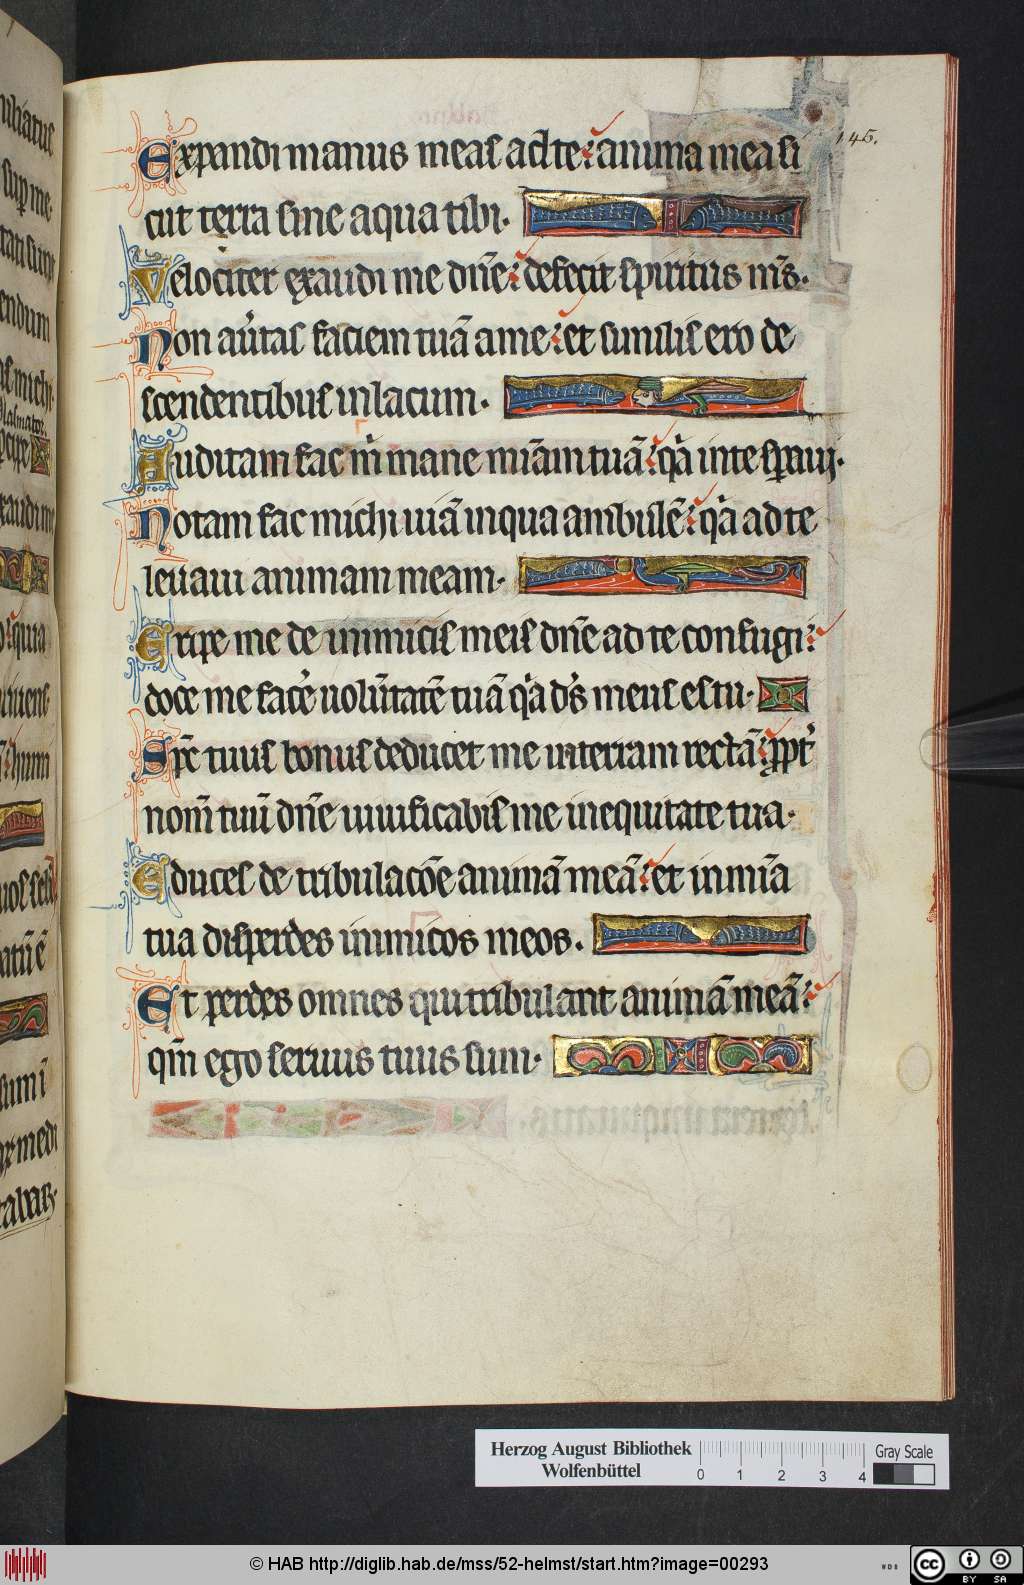 iliatus
sup me
endum
michi
psalmator
exaudi me
quia
145.
Expandi manus meas ad te: anima mea si
cut terra sine aqua tibi.
Velociter exaudi me dn̄e: defecit spiritus m̄s.
Non au̾tas faciem tuā a me: et similis ero de
scendentibus in lacum.
Auditam fac m̄ mane mīam tuā: q̄a in te sp̄aui.
Notam fac michi uiā in qua ambulē: q̄a ad te
leuaui animam meam.
Eripe me de inimicis meis dn̄e ad te confugi:
doce me face̾ uolu̾tatē tuā q̄a d̄s meus es tu.
Sp̄c tuus bonus deducet me in terram rectā: ꝓpt̾
nom̄ tuū dn̄e uiuificabis me in equitate tua.
Educes de tribulacōe animā meā: et in mīa
tua disperdes inimicos meos.
Et perdes omnes qui tribulant animā meā:
qm̄ ego seruus tuus sum.
Herzog August Bibliothek
Wolfenbüttel
0 1 2 3 4
Gray Scale
© HAB http://diglib.hab.de/mss/52-helmst/start.htm?image=00293
cc BY SA